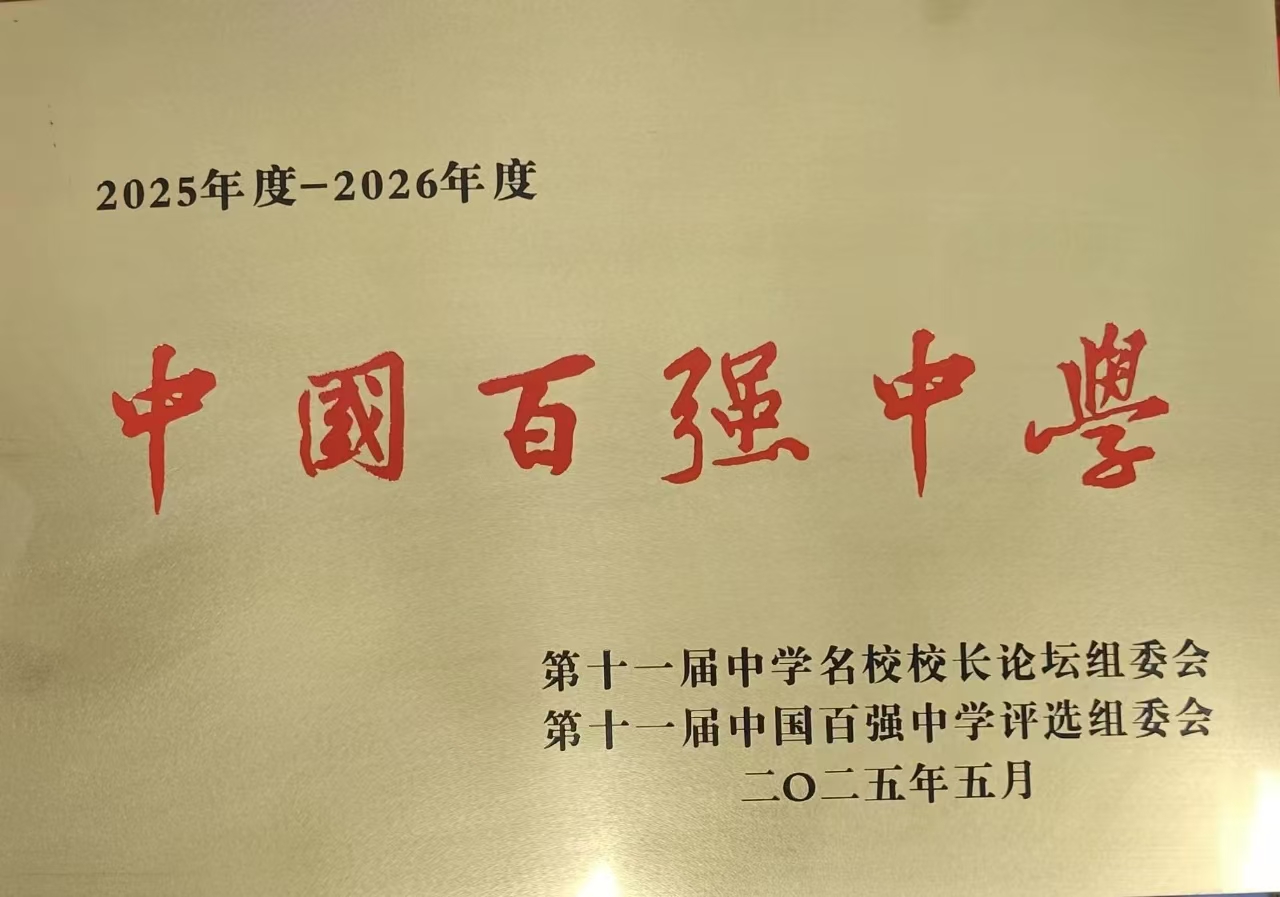 2025年度-2026年度
中國百强中學
第十一届中学名校校长论坛组委会
第十一届中国百强中学评选组委会
二〇二五年五月